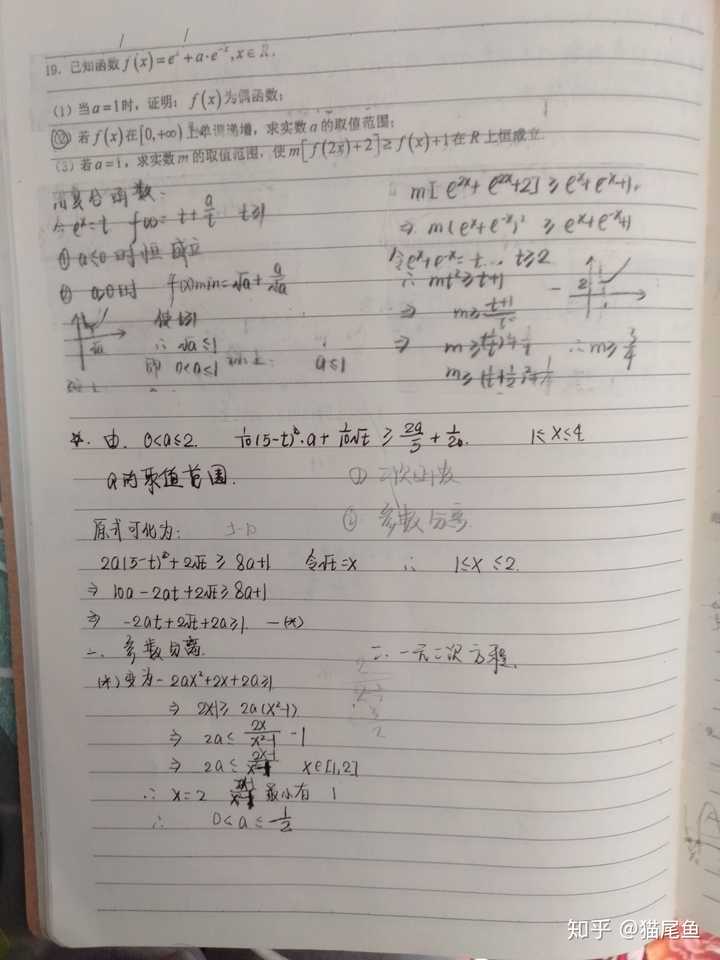 19. 已知函数 f(x)=e^x+a·e^{-x}, x∈R.
(1) 当a=1时，证明：f(x)为偶函数；
(2) 若f(x)在[0,+∞)上单调递增，求实数a的取值范围；
(3) 若a=1，求实数m的取值范围，使m[f(2x)+2]≥f(x)+1在R上恒成立.
复合函数.
令e^x=t f(x)=t+a/t t≥1
① a≤0时恒成立
② a>0时 f(x)min=√a+a/√a
使t≥1
∴ √a≤1
即 0<a≤1 a≤1
m[e^{2x}+e^{2x}+2]≥e^x+e^x+1.
⇒ m(e^x+e^{-x})²≥e^x+e^{-x}+1
令e^x+e^{-x}=t... t≥2
∴ mt²≥t+1
⇒ m≥
⇒ ∴m≥3/4
☆. 由. 0<a≤2. 1/10(5-t)·a+1/10√t≥2a/5+1/20. 1≤x≤4
a的取值范围.
① 二次函数
② 参数分离
原式可化为:
2a(5-t)+2√t≥8a+1 令√t=x ∴ 1≤x≤2.
⇒ 10a-2at+2√t≥8a+1
⇒ -2at+2√t+2a≥1. —(*)
一、参数分离. 二、一元二次方程.
(*)变为-2ax²+2x+2a≥1
⇒ 2x-1≥2a(x²-1)
⇒ 2a≤2x/x²-1 -1
⇒ 2a≤2x-1/x²-1 x∈[1,2]
∴ x=2 最小有 1
∴ 0<a≤1/2
知乎 @猫尾鱼